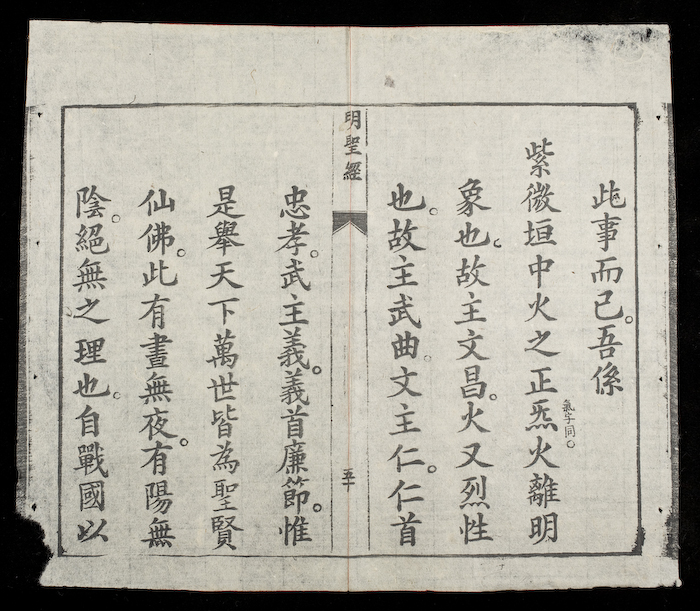 此事而已。吾係
紫微垣中火之正炁氣字同。火離明
象也。故主文昌。火又烈性
也。故主武曲。文主仁。仁首
明聖經
五十
忠孝。武主義。義首廉節。惟
是舉天下萬世皆為聖賢
仙佛。此有晝無夜。有陽無
陰。絕無之理也。自戰國以